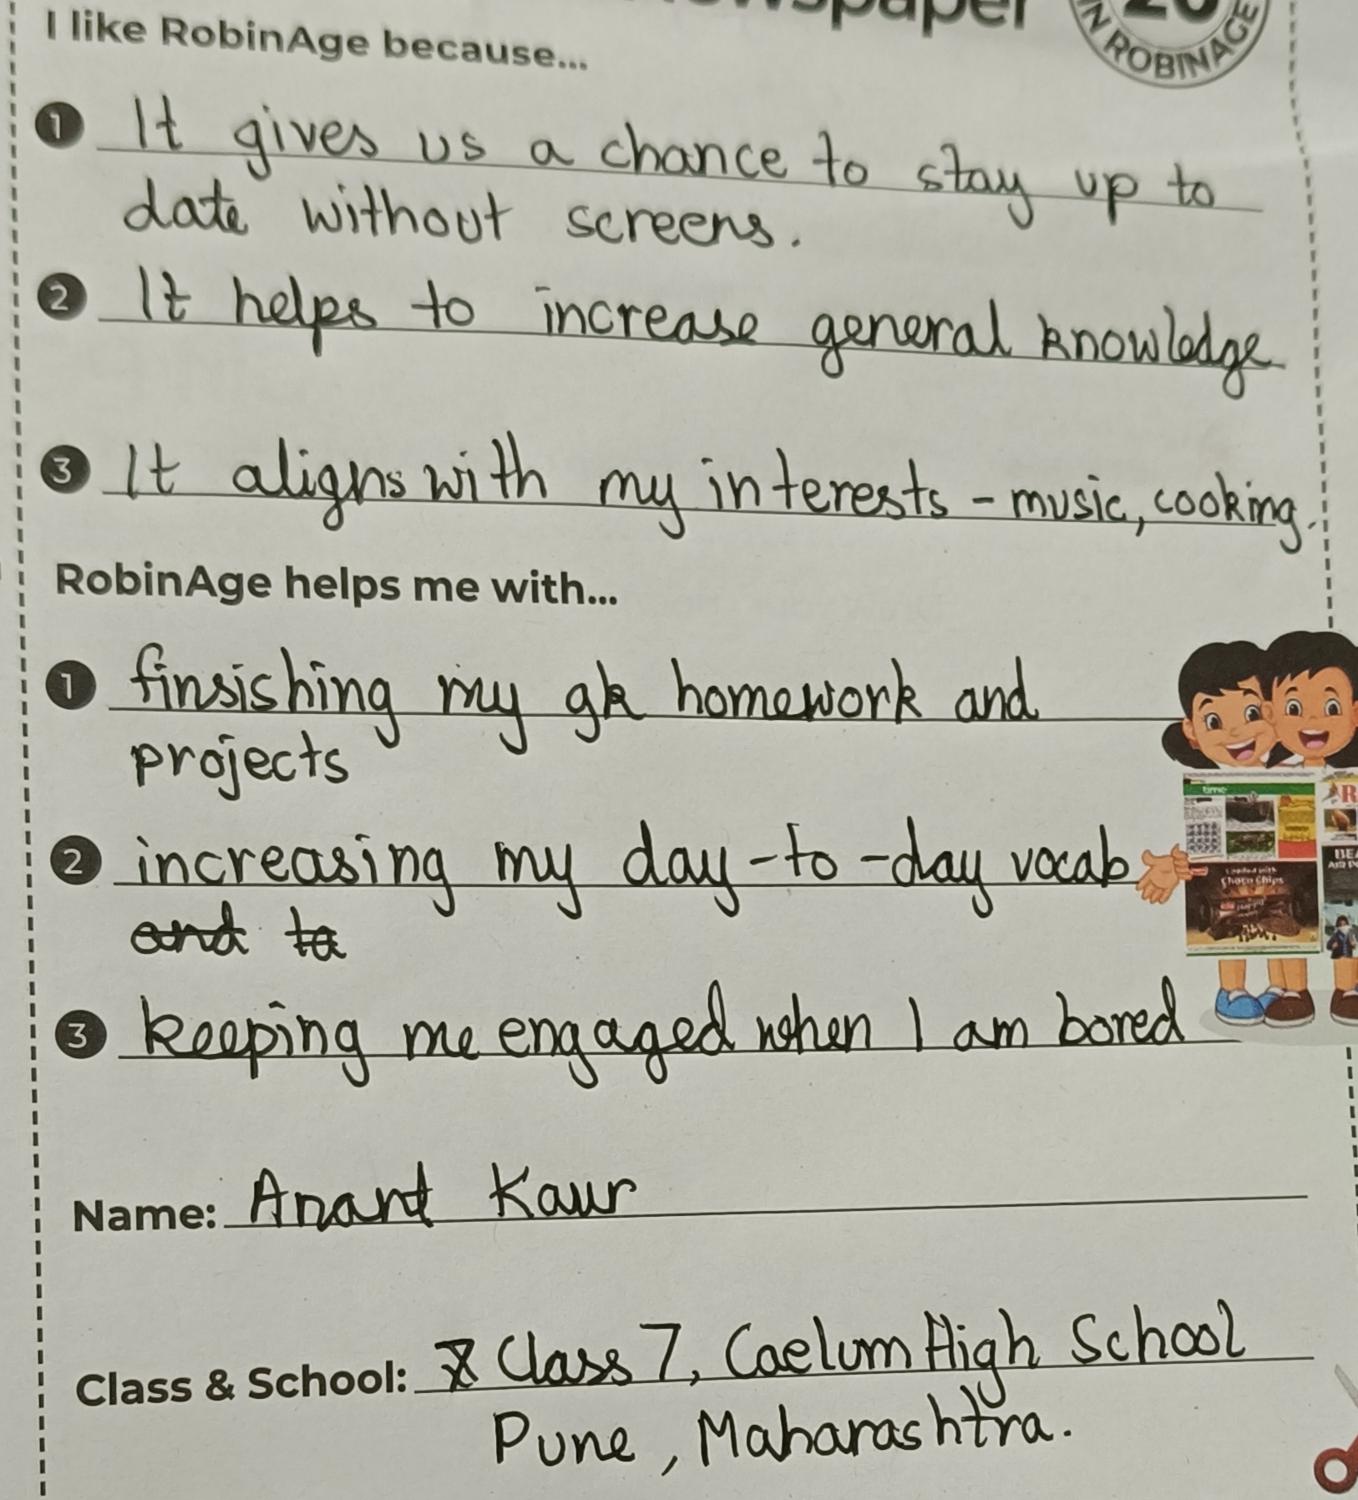 newspaper
IN ROBINAGE
I like RobinAge because...
1 It gives us a chance to stay up to
date without screens.
2 It helps to increase general knowledge
3 It aligns with my interests - music, cooking.
RobinAge helps me with...
1 finsishing my gk homework and
projects
2 increasing my day-to-day vocab
and to
3 keeping me engaged when I am bored
time
Loaded with
Choco Chips
Name: Anant Kaur
Class & School: Class 7, Caelum High School
Pune, Maharashtra.